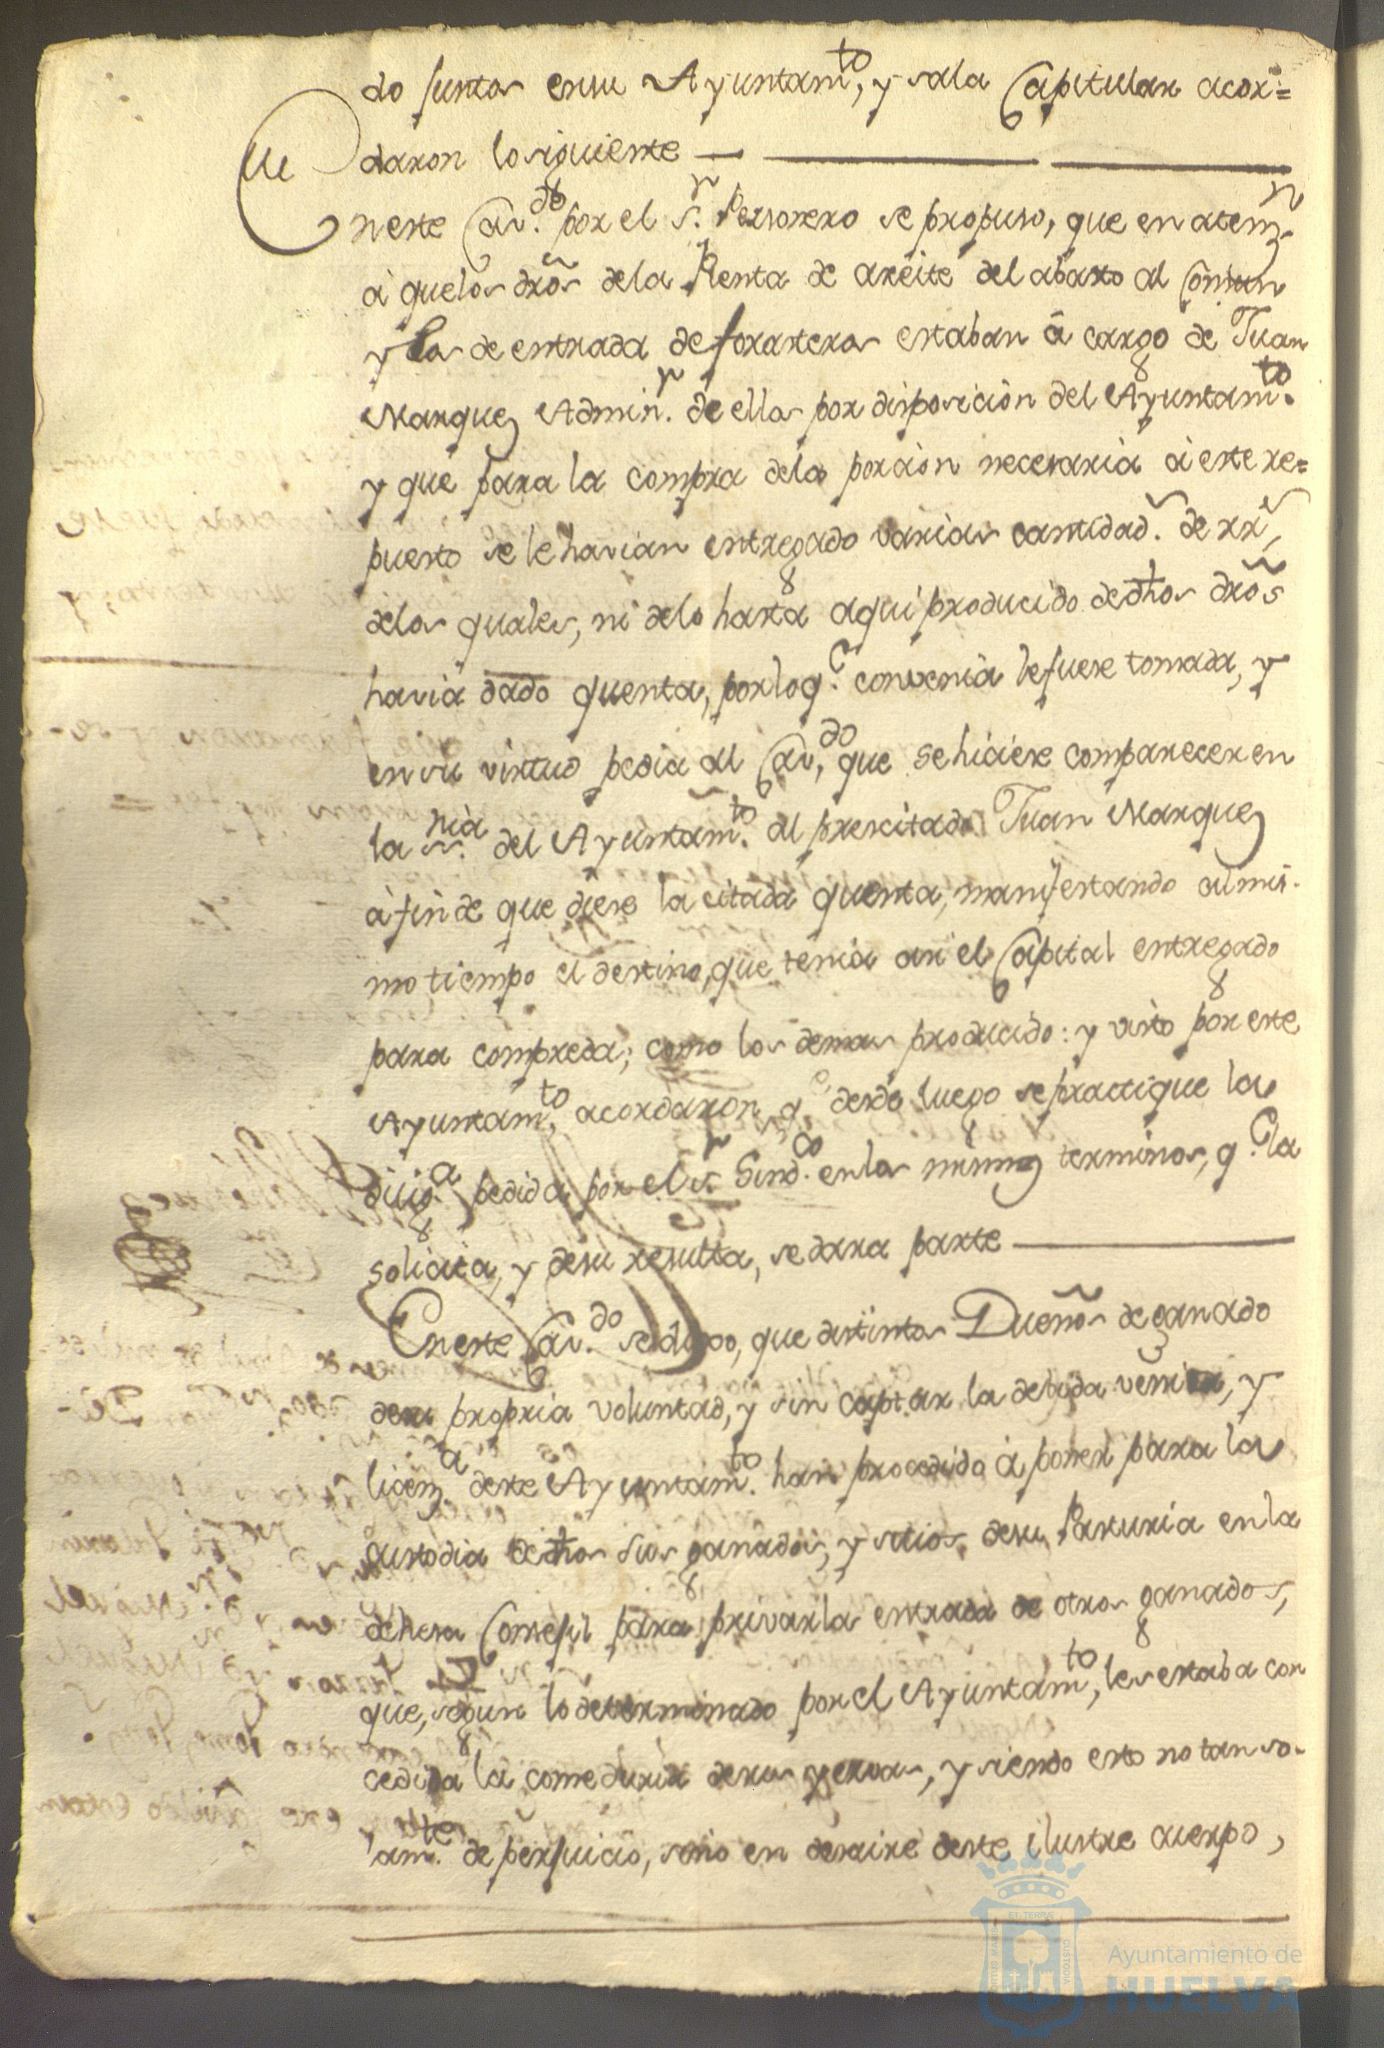 do juntos ensu Ayuntamto, y sala Capitular acor=
daron lo siguiente
En este Cavdo por el Sr. Personero se propuso, que en atenzn
â quelos dros dela Renta de azeite del abasto al Comun
y las de entrada de forasteros estaban â cargo de Juan
Marquez Adminr. de ellas por disposicion del Ayuntamto.
y que para la compra dela porcion necesaria â este re=
puesto se le havian entregado varias cantidads. de rrs,
delos quales, ni delo hasta aqui producido de dhos dros
havia dado quenta, porloqe. convenia lefuese tomada, y
ensu virtud pedia al Cavdo, que sehiciese comparecer en
la sria. del Ayuntamto. al prescitado Juan Marquez
â fin de que diese la citada quenta, manifestando almis-
mo tiempo el destino, que tenia asi el Capital entregado
para compreda; como los demas producido: y visto por este
Ayuntamto. acordaron qe desde luego sepractique la
diliga. pedida por el Sr. Sindco. enlos mismoz terminos, qe. la
solicita, y desu resulta, se dara parte
En este Cavdo. se dixo, que distintos Dueños de ganado
desu propria voluntad, y sin captar la debida venia, y
licenza. deste Ayuntamto. han procedido â poner para la
Custodia de dhos sus ganados, y sitios desu Pasturia en la
dehesa Consejil para privarla entrada de otros ganados,
que, segun lo determinado por el Ayuntamto, les estaba con
cedida la comeduria desus yervas, y siendo esto no tan so-
lamte. de perjuicio, sino en desaire deste ilustre cuerpo,
Ayuntamiento de
HUELVA